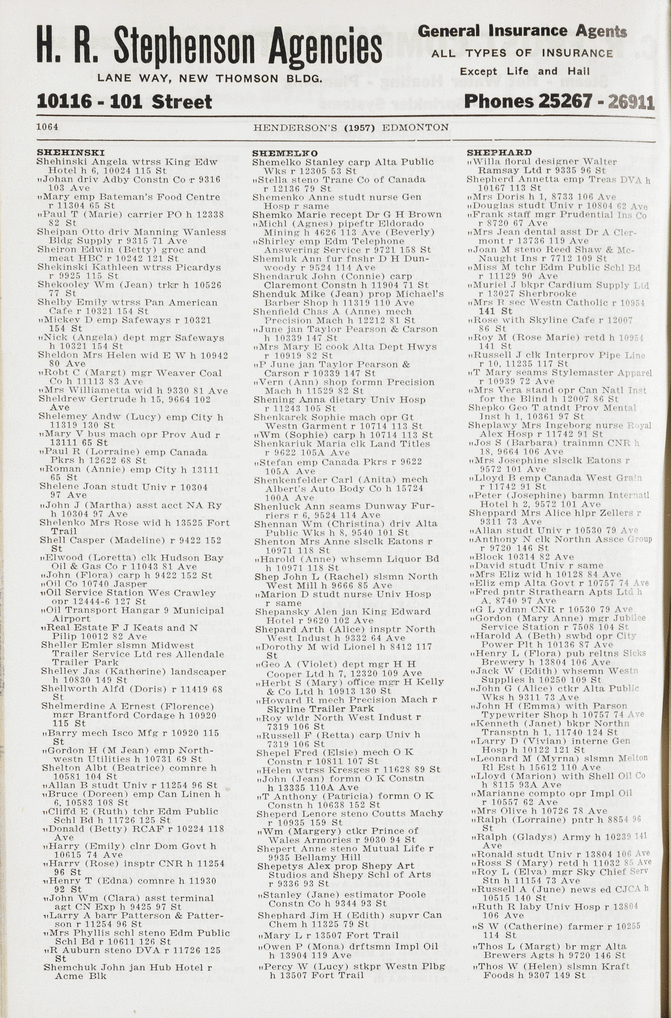 H. R. Stephenson Agencies
LANE WAY, NEW THOMSON BLDG.
General Insurance Agents
ALL TYPES OF INSURANCE
Except Life and Hail
10116 - 101 Street
Phones 25267 - 26911
1064
HENDERSON'S (1957) EDMONTON
SHEHINSKI
Shehinski Angela wtrss King Edw
Hotel h 6, 10024 115 St
„Johan driv Adby Constn Co r 9316
103 Ave
„Mary emp Bateman's Food Centre
r 11304 65 St
„Paul T (Marie) carrier PO h 12338
82 St
Sheipan Otto driv Manning Wanless
Bldg Supply r 9315 71 Ave
Sheiron Edwin (Betty) groc and
meat HBC r 10242 121 St
Shekinski Kathleen wtrss Picardys
r 9925 115 St
Shekooley Wm (Jean) trkr h 10526
77 St
Shelby Emily wtrss Pan American
Cafe r 10321 154 St
„Mickey D emp Safeways r 10321
154 St
„Nick (Angela) dept mgr Safeways
h 10321 154 St
Sheldon Mrs Helen wid E W h 10942
80 Ave
„Robt C (Margt) mgr Weaver Coal
Co h 11113 83 Ave
„Mrs Williametta wid h 9330 81 Ave
Sheldrew Gertrude h 15, 9664 102
Ave
Shelemey Andw (Lucy) emp City h
11319 130 St
„Mary V bus mach opr Prov Aud r
13111 65 St
„Paul R (Lorraine) emp Canada
Pkrs h 12622 68 St
„Roman (Annie) emp City h 13111
65 St
Shelene Joan studt Univ r 10304
97 Ave
„John J (Martha) asst acct NA Ry
h 10304 97 Ave
Shelenko Mrs Rose wid h 13525 Fort
Trail
Shell Casper (Madeline) r 9422 152
St
„Elwood (Loretta) clk Hudson Bay
Oil & Gas Co r 11043 81 Ave
„John (Flora) carp h 9422 152 St
„Oil Co 10740 Jasper
„Oil Service Station Wes Crawley
opr 12444-6 127 St
„Oil Transport Hangar 9 Municipal
Airport
„Real Estate F J Keats and N
Pilip 10012 82 Ave
Sheller Emler slsmn Midwest
Trailer Service Ltd res Allendale
Trailer Park
Shelley Jas (Katherine) landscaper
h 10830 149 St
Shellworth Alfd (Doris) r 11419 68
St
Shelmerdine A Ernest (Florence)
mgr Brantford Cordage h 10920
115 St
„Barry mech Isco Mfg r 10920 115
St
„Gordon H (M Jean) emp North-
westn Utilities h 10731 69 St
Shelton Albt (Beatrice) comnre h
10581 104 St
„Allan B studt Univ r 11254 96 St
„Bruce (Doreen) emp Can Linen h
6, 10583 108 St
„Cliffd E (Ruth) tchr Edm Public
Schl Bd h 11726 125 St
„Donald (Betty) RCAF r 10224 118
Ave
„Harry (Emily) clnr Dom Govt h
10615 74 Ave
„Harry (Rose) insptr CNR h 11254
96 St
„Henry T (Edna) comnre h 11930
92 St
„John Wm (Clara) asst terminal
agt CN Exp h 9425 97 St
„Larry A barr Patterson & Patter-
son r 11254 96 St
„Mrs Phyllis schl steno Edm Public
Schl Bd r 10611 126 St
„R Auburn steno DVA r 11726 125
St
Shemchuk John jan Hub Hotel r
Acme Blk
SHEMELKO
Shemelko Stanley carp Alta Public
Wks r 12305 53 St
„Stella steno Trane Co of Canada
r 12136 79 St
Shemenko Anne studt nurse Gen
Hosp r same
Shemko Marie recept Dr G H Brown
„Michl (Agnes) pipeftr Eldorado
Mining h 4626 113 Ave (Beverly)
„Shirley emp Edm Telephone
Answering Service r 9721 158 St
Shemluk Ann fur fnshr D H Dun-
woody r 9524 114 Ave
Shendaruk John (Connie) carp
Claremont Constn h 11904 71 St
Shenduk Mike (Jean) prop Michael's
Barber Shop h 11319 110 Ave
Shenfield Chas A (Anne) mech
Precision Mach h 12212 81 St
„June jan Taylor Pearson & Carson
h 10339 147 St
„Mrs Mary E cook Alta Dept Hwys
r 10919 82 St
„P June jan Taylor Pearson &
Carson r 10339 147 St
„Vern (Ann) shop formn Precision
Mach h 11529 82 St
Shening Anna dietary Univ Hosp
r 11243 105 St
Shenkarek Sophie mach opr Gt
Westn Garment r 10714 113 St
„Wm (Sophie) carp h 10714 113 St
Shenkariuk Maria clk Land Titles
r 9622 105A Ave
„Stefan emp Canada Pkrs r 9622
105A Ave
Shenkenfelder Carl (Anita) mech
Albert's Auto Body Co h 15724
100A Ave
Shenluck Ann seams Dunway Fur-
riers r 6, 9524 114 Ave
Shennan Wm (Christina) driv Alta
Public Wks h 8, 9540 101 St
Shenton Mrs Anne slsclk Eatons r
10971 118 St
„Harold (Anne) whsemn Liquor Bd
h 10971 118 St
Shep John L (Rachel) slsmn North
West Mill h 9666 85 Ave
„Marion D studt nurse Univ Hosp
r same
Shepansky Alen jan King Edward
Hotel r 9620 102 Ave
Shepard Arth (Alice) insptr North
West Indust h 9332 64 Ave
„Dorothy M wid Lionel h 8412 117
St
„Geo A (Violet) dept mgr H H
Cooper Ltd h 7, 12320 109 Ave
„Herbt S (Mary) office mgr H Kelly
& Co Ltd h 10913 130 St
„Howard R mech Precision Mach r
Skyline Trailer Park
„Roy wldr North West Indust r
7319 106 St
„Russell F (Retta) carp Univ h
7319 106 St
Shepel Fred (Elsie) mech O K
Constn r 10811 107 St
„Helen wtrss Kresges r 11628 89 St
„John (Jean) formn O K Constn
h 13335 110A Ave
„T Anthony (Patricia) formn O K
Constn h 10638 152 St
Sheperd Lenore steno Coutts Machy
r 10935 159 St
„Wm (Margery) ctkr Prince of
Wales Armories r 9030 94 St
Shepert Anne steno Mutual Life r
9935 Bellamy Hill
Shepetys Alex prop Shepy Art
Studios and Shepy Schl of Arts
r 9336 93 St
„Stanley (Jane) estimator Poole
Constn Co h 9344 93 St
Shephard Jim H (Edith) supvr Can
Chem h 11325 79 St
„Mary L r 13507 Fort Trail
„Owen P (Mona) drftsmn Impl Oil
h 13904 119 Ave
„Percy W (Lucy) stkpr Westn Plbg
h 13507 Fort Trail
SHEPHARD
„Willa floral designer Walter
Ramsay Ltd r 9335 96 St
Shepherd Annetta emp Treas DVA h
10167 113 St
„Mrs Doris h 1, 8733 106 Ave
„Douglas studt Univ r 10804 62 Ave
„Frank staff mgr Prudential Ins Co
r 8720 67 Ave
„Mrs Jean dental asst Dr A Cler-
mont r 13726 119 Ave
„Joan M steno Reed Shaw & Mc-
Naught Ins r 7712 109 St
„Miss M tchr Edm Public Schl Bd
r 11129 90 Ave
„Muriel J bkpr Cardium Supply Ltd
r 13027 Sherbrooke
„Mrs R sec Westn Catholic r 10954
141 St
„Rose with Skyline Cafe r 12007
86 St
„Roy M (Rose Marie) retd h 10954
141 St
„Russell J clk Interprov Pipe Line
r 10, 11235 117 St
„T Mary seams Stylemaster Apparel
r 10939 72 Ave
„Mrs Vera stand opr Can Natl Inst
for the Blind h 12007 86 St
Shepko Geo T atndt Prov Mental
Inst h 1, 10361 97 St
Sheplawy Mrs Ingeborg nurse Royal
Alex Hosp r 11742 91 St
„Jos S (Barbara) trainmn CNR h
18, 9664 106 Ave
„Mrs Josephine slsclk Eatons r
9572 101 Ave
„Lloyd B emp Canada West Grain
r 11742 91 St
„Peter (Josephine) barmn Internatl
Hotel h 2, 9572 101 Ave
Sheppard Mrs Alice hlpr Zellers r
9311 73 Ave
„Allan studt Univ r 10530 79 Ave
„Anthony N clk Northn Assce Group
r 9720 146 St
„Block 10314 82 Ave
„David studt Univ r same
„Mrs Eliz wid h 10128 84 Ave
„Eliz emp Alta Govt r 10757 74 Ave
„Fred pntr Strathearn Apts Ltd h
A, 8740 97 Ave
„G L ydmn CNR r 10530 79 Ave
„Gordon (Mary Anne) mgr Jubilee
Service Station r 7508 104 St
„Harold A (Beth) swbd opr City
Power Plt h 10136 87 Ave
„Henry L (Flora) pub reltns Sicks
Brewery h 13804 106 Ave
„Jack W (Edith) whsemn Westn
Supplies h 10250 109 St
„John G (Alice) ctkr Alta Public
Wks h 9311 73 Ave
„John H (Emma) with Parson
Typewriter Shop h 10757 74 Ave
„Kenneth (Janet) bkpr Northn
Transptn h 1, 11740 124 St
„Larry D (Vivian) interne Gen
Hosp h 10122 121 St
„Leonard M (Myrna) slsmn Melton
Rl Est h 15612 110 Ave
„Lloyd (Marion) with Shell Oil Co
h 8115 93A Ave
„Marianne compto opr Impl Oil
r 10557 62 Ave
„Mrs Olive h 10726 78 Ave
„Ralph (Lorraine) pntr h 8854 96
St
„Ralph (Gladys) Army h 10239 141
Ave
„Ronald studt Univ r 13804 106 Ave
„Ross S (Mary) retd h 11032 85 Ave
„Roy L (Elva) mgr Sky Chief Serv
Stn h 11154 73 Ave
„Russell A (June) news ed CJCA h
10515 140 St
„Ruth R laby Univ Hosp r 13804
106 Ave
„S W (Catherine) farmer r 10255
114 St
„Thos L (Margt) br mgr Alta
Brewers Agts h 9720 146 St
„Thos W (Helen) slsmn Kraft
Foods h 9307 149 St